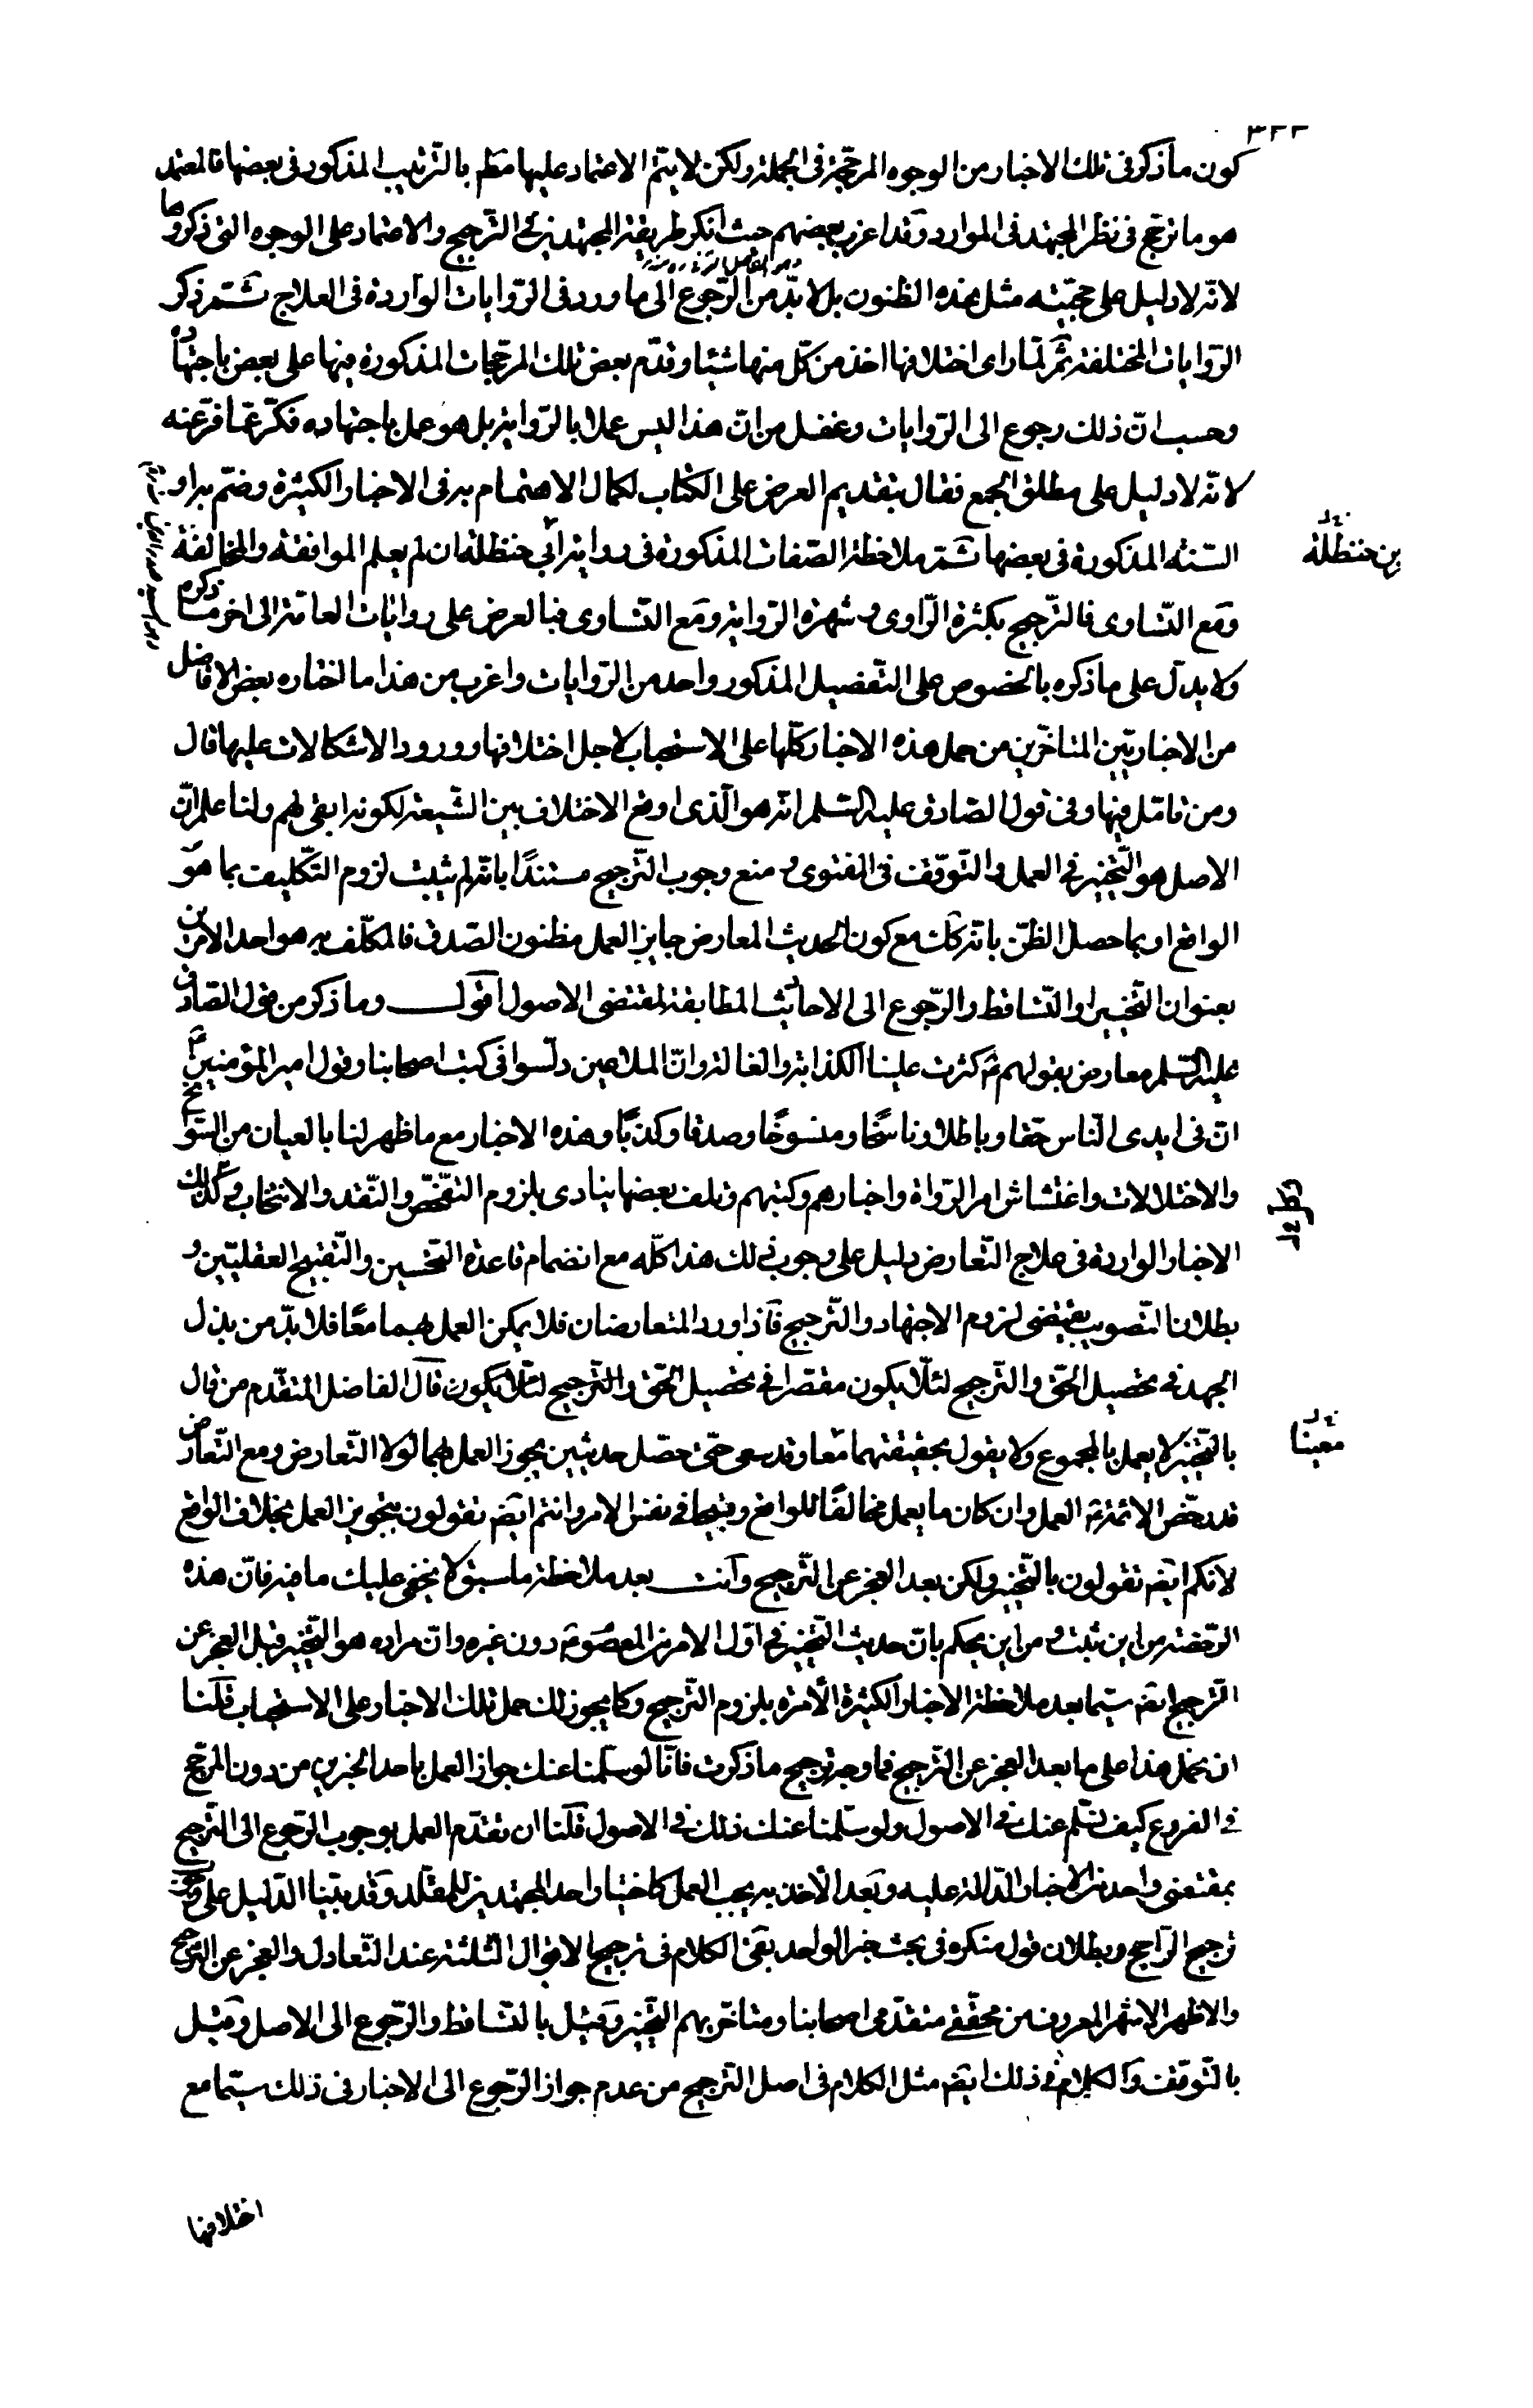 ٣٢٢
كون ما ذكر فى تلك الاخبار من الوجوه المرجّحة فى الجملة ولكن لا يتم الاعتماد عليها مط بالترتيب المذكور فى بعضها فالمعتمد
هو ما ترجّح فى نظر المجتهد فى الموارد وقد اغرب بعضهم حيث انكر طريقة المجتهدين فى الترجيح والاعتماد على الوجوه التى ذكروها
لانّه لا دليل على حجيّته مثل هذه الظنون بل لا بدّ من الرّجوع الى ما ورد فى الرّوايات الواردة فى العلاج ثمّ ذكر
الرّوايات المختلفة ثمّ لمّا راى اختلافها اخذ من كلّ منها شيئا وقدّم بعض تلك المرجّحات المذكورة فيها على بعض باجتهاده
وحسب انّ ذلك رجوع الى الرّوايات وغفل من انّ هذا ليس عملا بالرّواية بل هو عمل باجتهاده فكرّ عمّا فرّ عنه
لانّه لا دليل على مطلق الجمع فقال بتقديم العرض على الكتاب لكمال الاهتمام به فى الاخبار الكثيرة وضمّ به او
السّنّة المذكورة فى بعضها ثمّ ملاحظة الصّفات المذكورة فى رواية ابي حنظلة ان لم يعلم الموافقة والمخالفة
بن حنظلة
ومع التّساوى فالترجيح بكثرة الرّاوى و شهرة الرّواية ومع التّساوى فبالعرض على روايات العامّة الى اخر ما ذكره
ولا يدلّ على ما ذكره بالخصوص على التّفصيل المذكور واحد من الرّوايات واغرب من هذا ما اختاره بعض الافاضل
من الاخباريّين المتاخّرين من حمل هذه الاخبار كلّها على الاستحباب لاجل اختلافها وورود الاشكالات عليها قال
ومن تامّل فيها وفى قول الصّادق عليه السّلم انّه هو الّذى اوقع الاختلاف بين الشّيعة لكونه ابقى لهم ولنا علم انّ
الاصل هو التّخيير فى العمل والتّوقّف فى الفتوى و منع وجوب التّرجيح مستندًا بانّه لم يثبت لزوم التّكليف بما هو
الواقع او بما حصل الظّنّ بانّه كك مع كون الحديث المعارض جايز العمل مظنون الصّدق فالمكلّف به هو احد الامرين
بعنوان التّخيير او التّساقط والرّجوع الى الاحاديث المطابقة لمقتضى الاصول اقول وما ذكر من قول الصّادق
عليه السّلم معارض بقولهم ع كثرت علينا الكذابة والغالة وانّ الملاعين دلّسوا فى كتب اصحابنا وقول امير المؤمنين ع
انّ فى ايدى النّاس حقّا وباطلا وناسخًا ومنسوخًا وصدقا وكذبًا وهذه الاخبار مع ما ظهر لنا بالعيان من السّوانح
والاختلالات واغتشاش امر الرّواة واخبارهم وكتبهم وتلف بعضها ينادى بلزوم التّفحّص والنّقد والانتخاب وكذلك
الاخبار الواردة فى علاج التّعارض دليل على وجوب ذلك هذا كلّه مع انضمام قاعدة التّحسين والتّقبيح العقليّين و
بطلان التّصويب يقتضى لزوم الاجتهاد والتّرجيح فاذا ورد المتعارضان فلا يمكن العمل بهما معًا فلا بدّ من بذل
الجهد فى تحصيل الحقّ والتّرجيح لئلّا يكون مقصّرا فى تحصيل الحقّ والتّرجيح لئلّا يكون قال الفاضل المتقدّم من قال
بالتّخيير لا يعمل بالمجموع ولا يقول بحقيقتهما معًا وقد سعى حتّى حصّل حديثين يجوز العمل بهما لولا التّعارض ومع التّعارض
معينا
قد رخّص الائمّة ع العمل وان كان ما يعمل مخالفًا للواقع وقبيحا فى نفس الامر وانتم ايضا تقولون بتجويز العمل بخلاف الواقع
لانّكم ايضا تقولون بالتّخيير ولكن بعد العجز عن التّرجيح وانت بعد ملاحظة ما سبق لا يخفى عليك ما فيه فانّ هذه
الرّخصة من اين ثبت و من اين يحكم بانّ حديث التّخيير فى اوّل الامر من المعصوم ع دون غيره وانّ مراده هو التّخيير قبل العجز عن
التّرجيح ايضا سيّما بعد ملاحظة الاخبار الكثيرة الآمرة بلزوم التّرجيح وكما يجوز لك حمل تلك الاخبار على الاستحباب فلنا
ان نحمل هذا على ما بعد العجز عن التّرجيح فما وجه ترجيح ما ذكرت فانّا لو سلّمنا عنك جواز العمل باحد الخبرين من دون المرجّح
فى الفروع كيف نسلّم عنك فى الاصول ولو سلّمنا عنك ذلك فى الاصول فلنا ان نقدّم العمل بوجوب الرّجوع الى التّرجيح
بمقتضى واحد من الاخبار الدّالة عليه وبعد الأخذ به يجب العمل كاختيار احد المجتهدين للمقلّد وقد بيّنا الدّليل على وجوب
ترجيح الرّاجح وبطلان قول منكره فى بحث خبر الواحد بقى الكلام فى ترجيح الاقوال الثّلثة عند التّعادل والعجز عن التّرجيح
والاظهر الاشهر المعروف من محقّقى متقدّمى اصحابنا ومتاخّريهم التّخيير وقيل بالتّساقط والرّجوع الى الاصل وقيل
بالتّوقّف والكلام فى ذلك ايضا مثل الكلام فى اصل التّرجيح من عدم جواز الرّجوع الى الاخبار فى ذلك سيّما مع
اختلافها